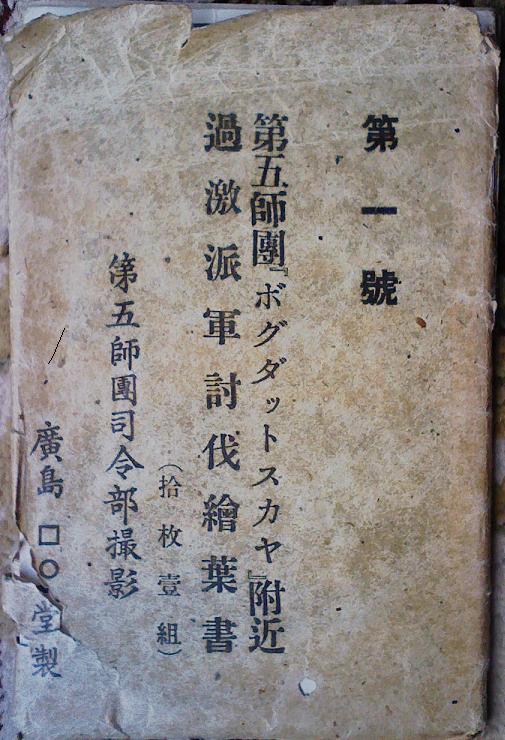 第一號
第五師團『ボグダットスカヤ』附近
過激派軍討伐繪葉書
（拾枚壹組）
第五師團司令部撮影
廣島 □○堂製